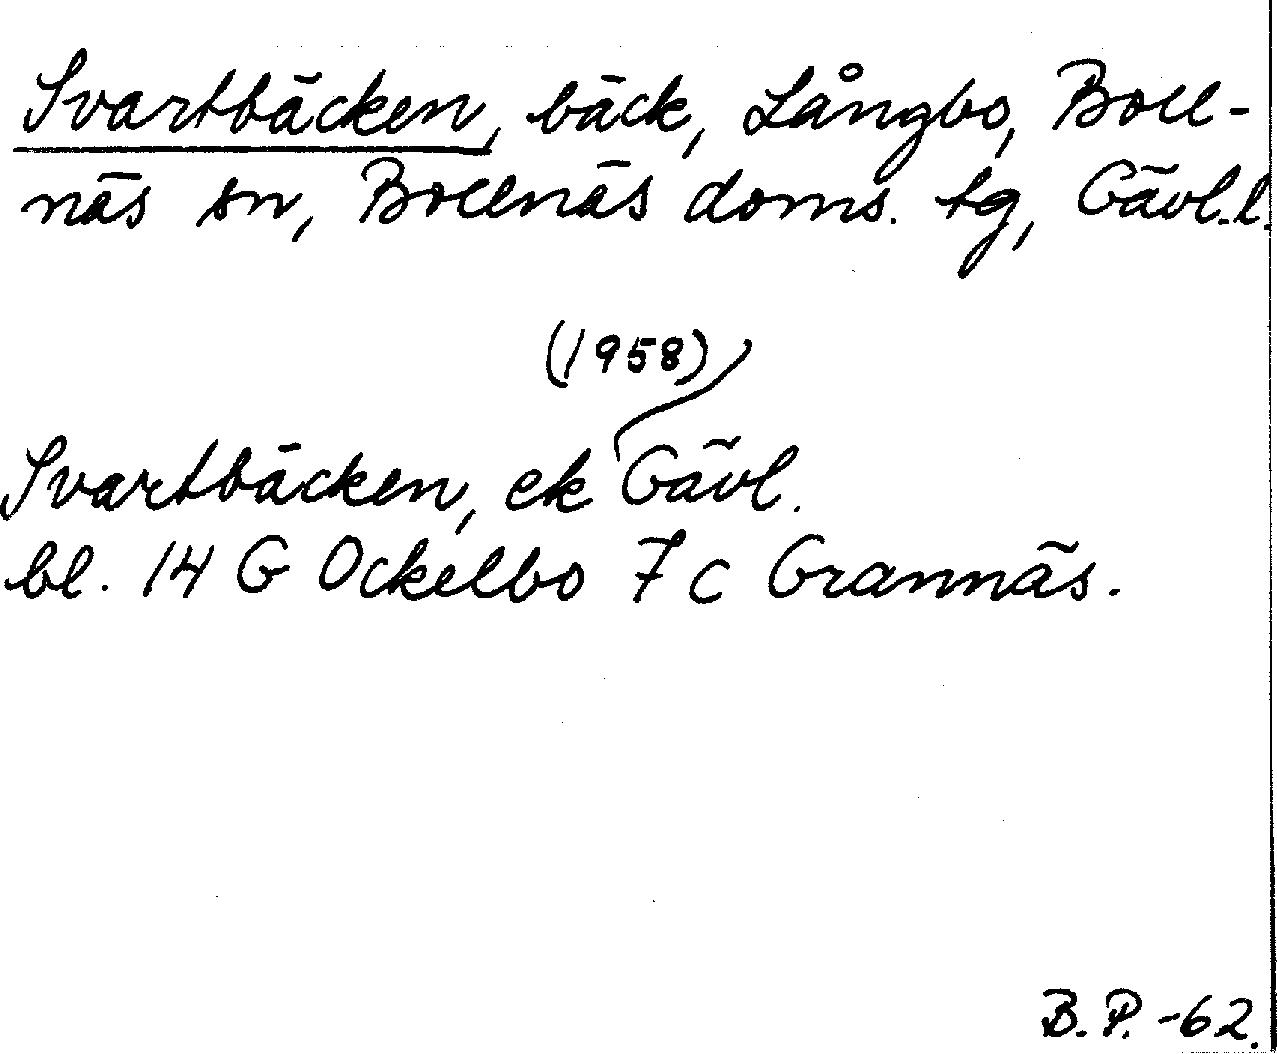 Svartbäcken, bäck, Långbo, Boll-
näs sn, Bollnäs doms. tg, Gävl.l.
(1958)
Svartbäcken, ek Gävl.
bl. 14 G Ockelbo 7 c Grannäs.
B.P. -62.